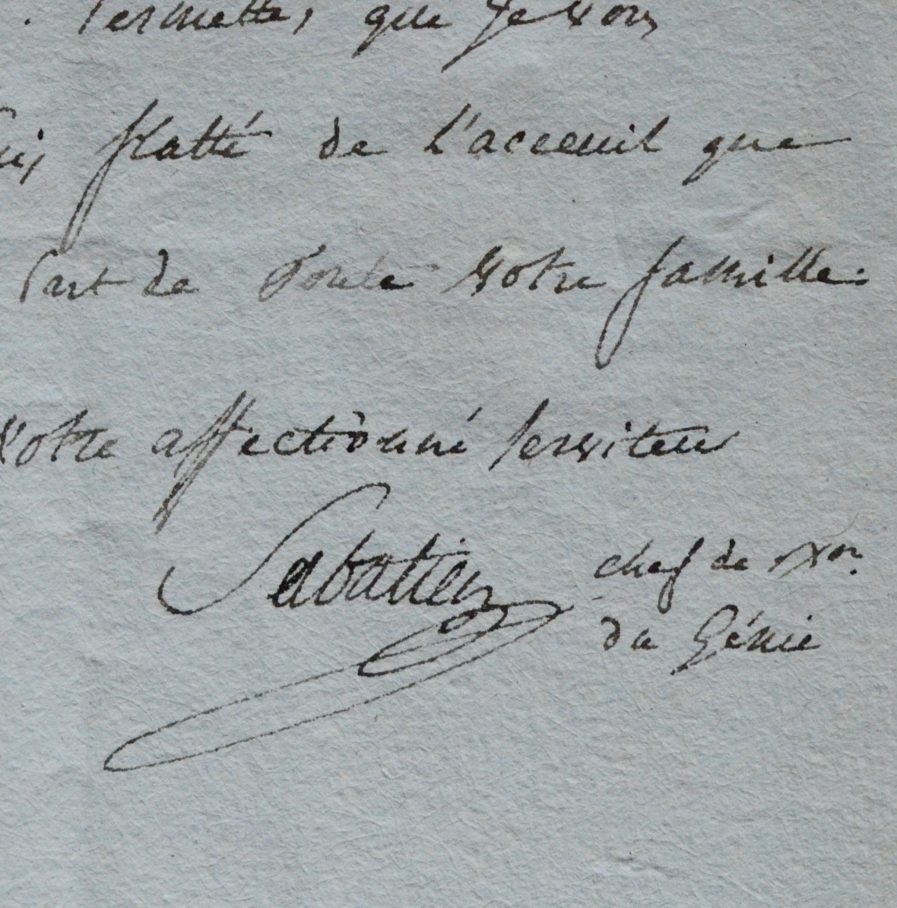 . Permettes que je vous
flatté de l'acceuil que
Part de Toute votre famille.
votre affectionné serviteur
Sabatier chef de Bon
du Génie